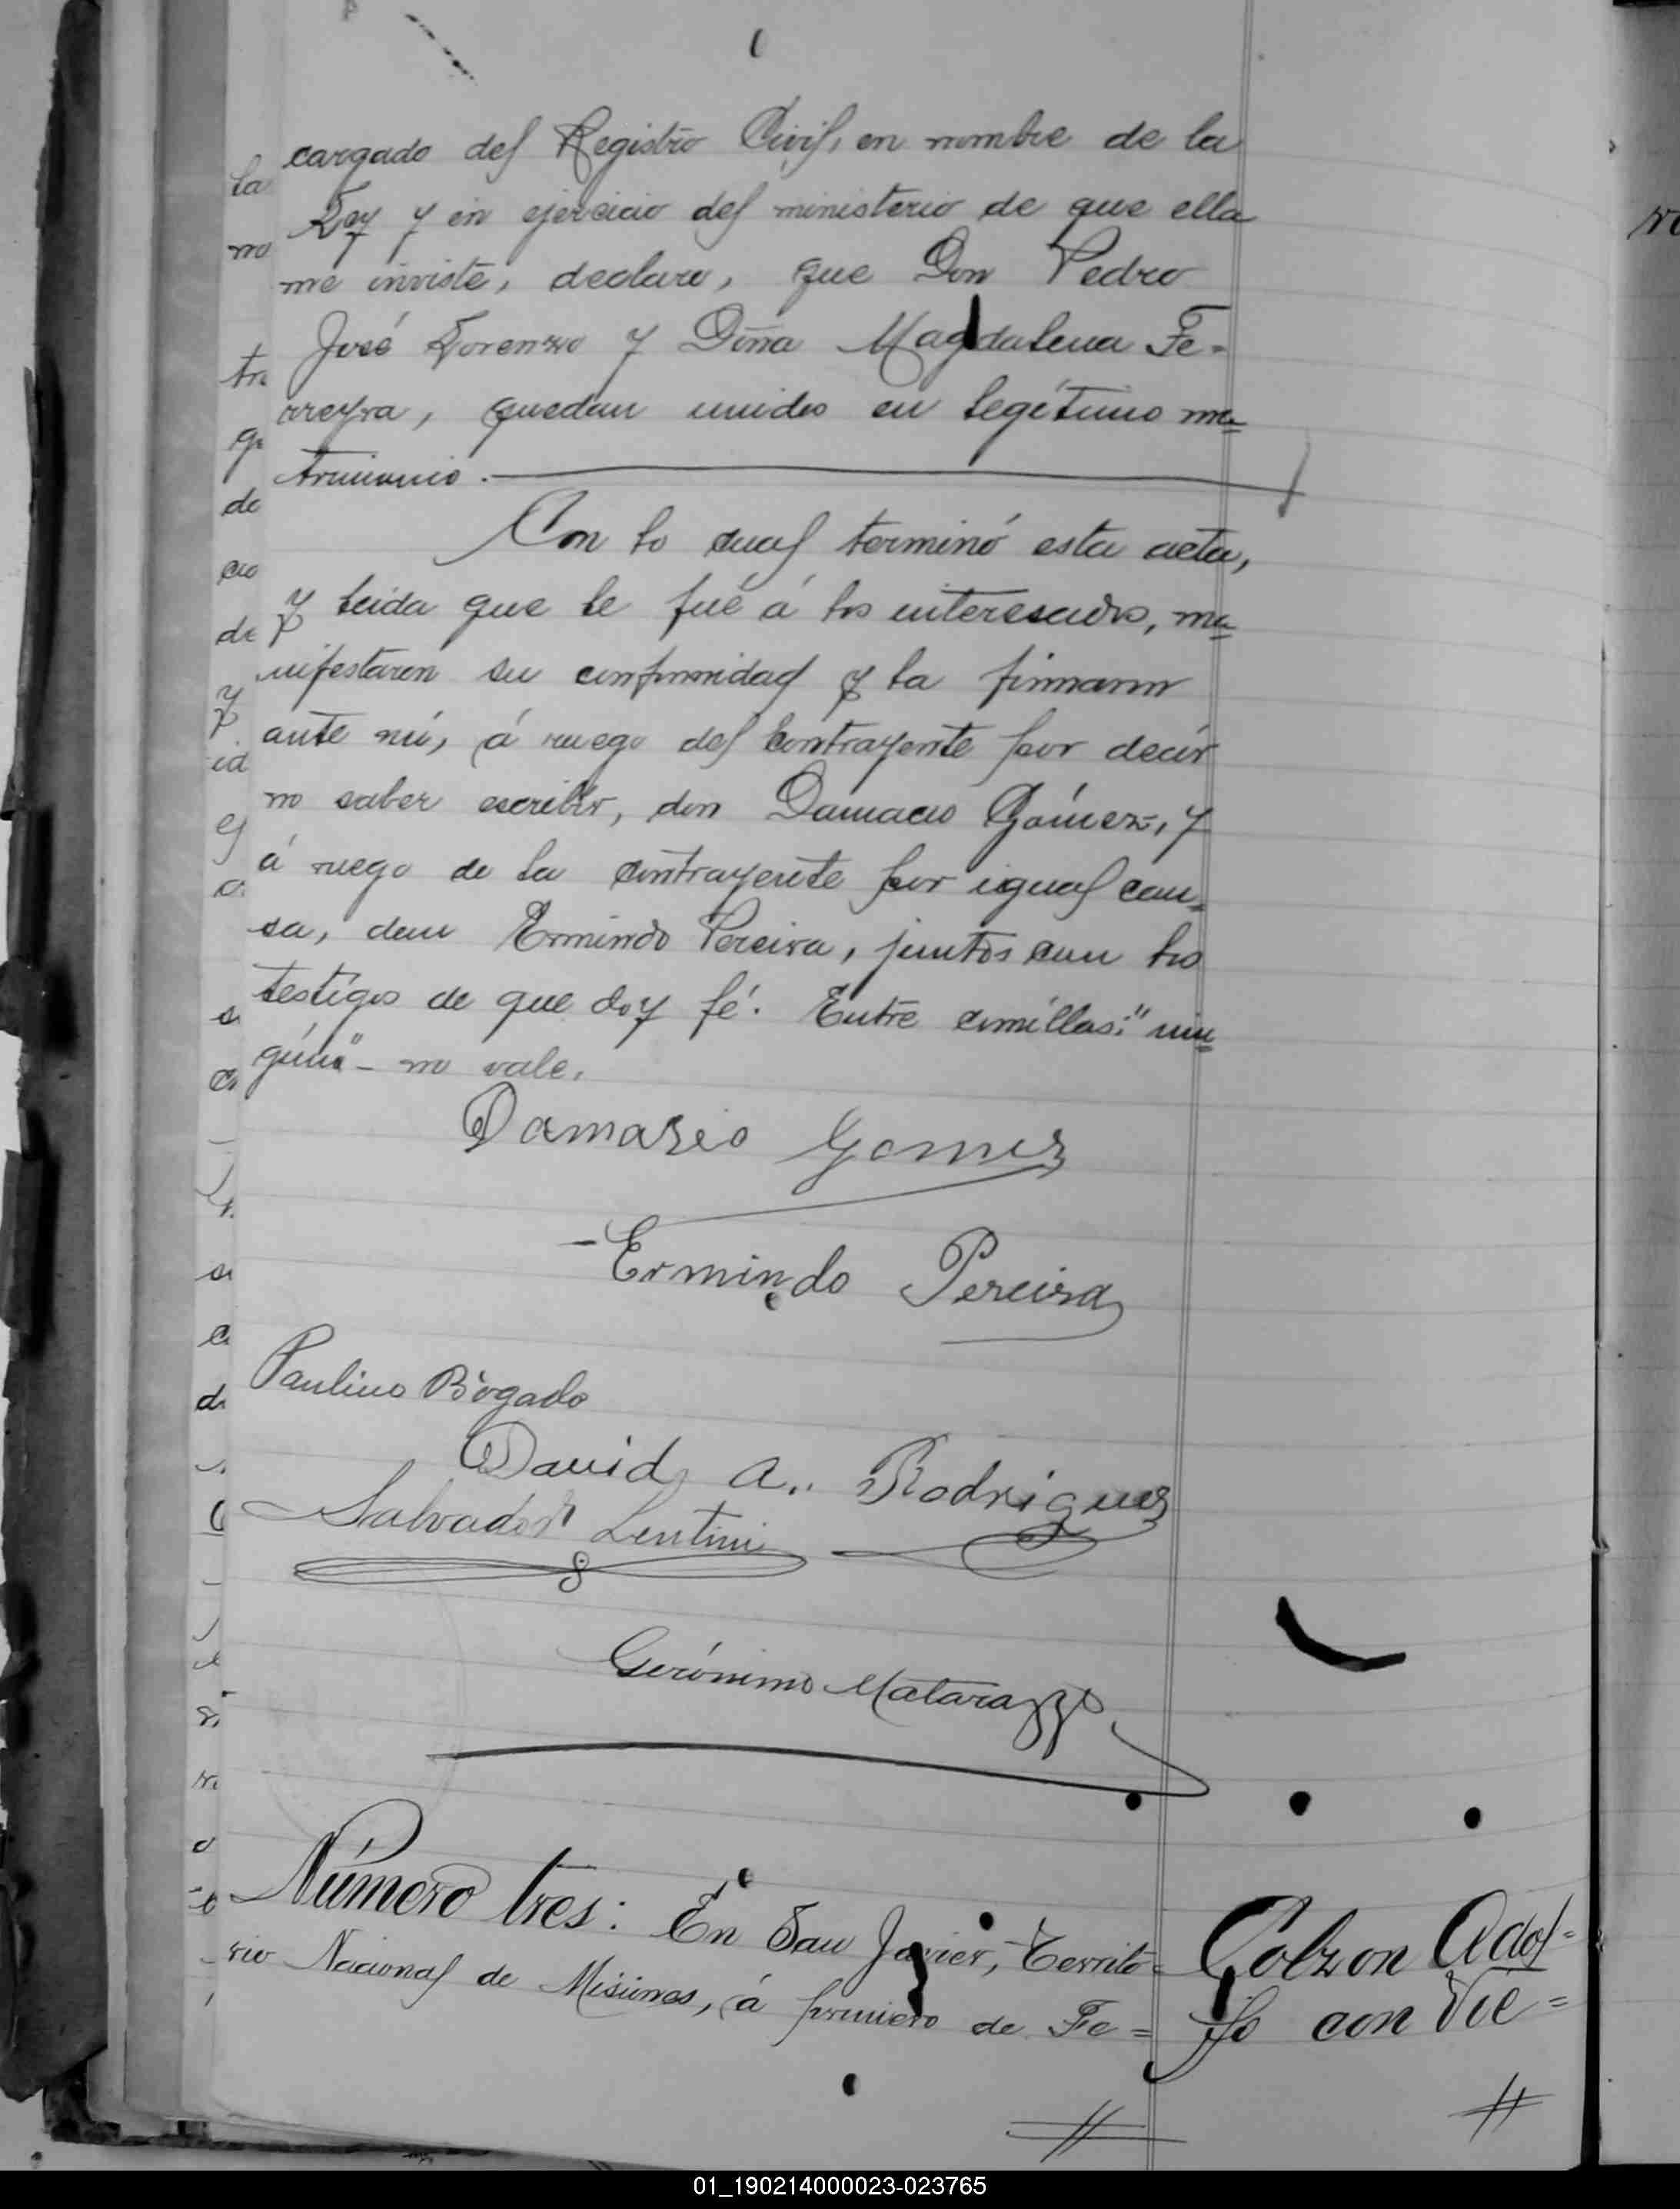 cargado del Registro Civil, en nombre de la
Ley y en ejercicio del ministerio de que ella
me inviste, declaro, que Don Pedro
José Lorenzo y Doña Magdalena Fe=
rreyra, quedan unidos en legítimo ma=
trimonio.
Con lo cual terminó esta acta,
y leida que le fué á los interesados, ma=
nifestaron su conformidad y la firmaron
ante mí, á ruego del contrayente por decir
no saber escribir, don Damacio Gómez, y
á ruego de la contrayente por igual cau=
sa, don Ermindo Pereira, juntos con los
testigos de que doy fé. Entre comillas: "nin=
gún" - no vale.
Damasio Gomez
Ermindo Pereira
Paulino Bogado
David A. Rodriguez
Salvador Lentini
Gerónimo Matarazzo
Número tres: En San Javier, Territo=
rio Nacional de Misiones, á primero de Fe=
Golzon Adol=
fo con Vie=
01_190214000023-023765